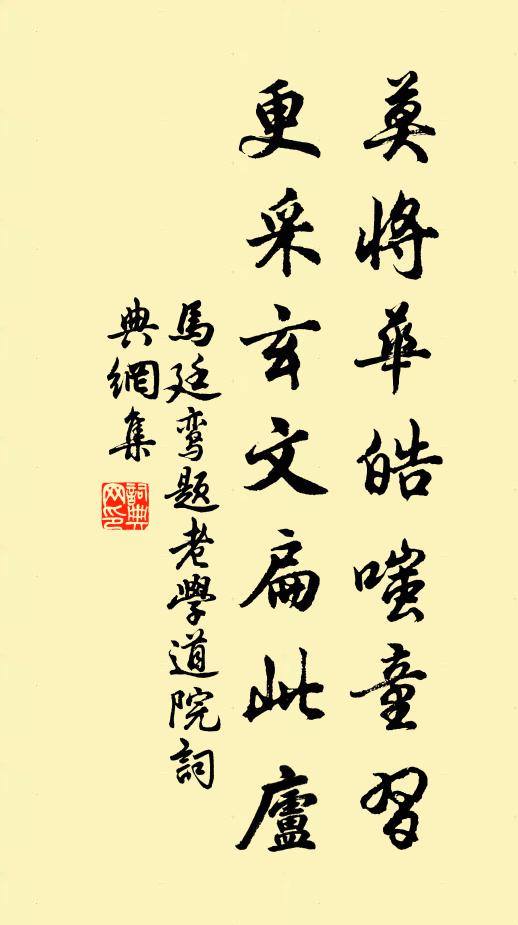 莫將華皓嗤童習
更采玄文扁此廬
馬廷鸾题老學道院詞
典網集
詞典
网印